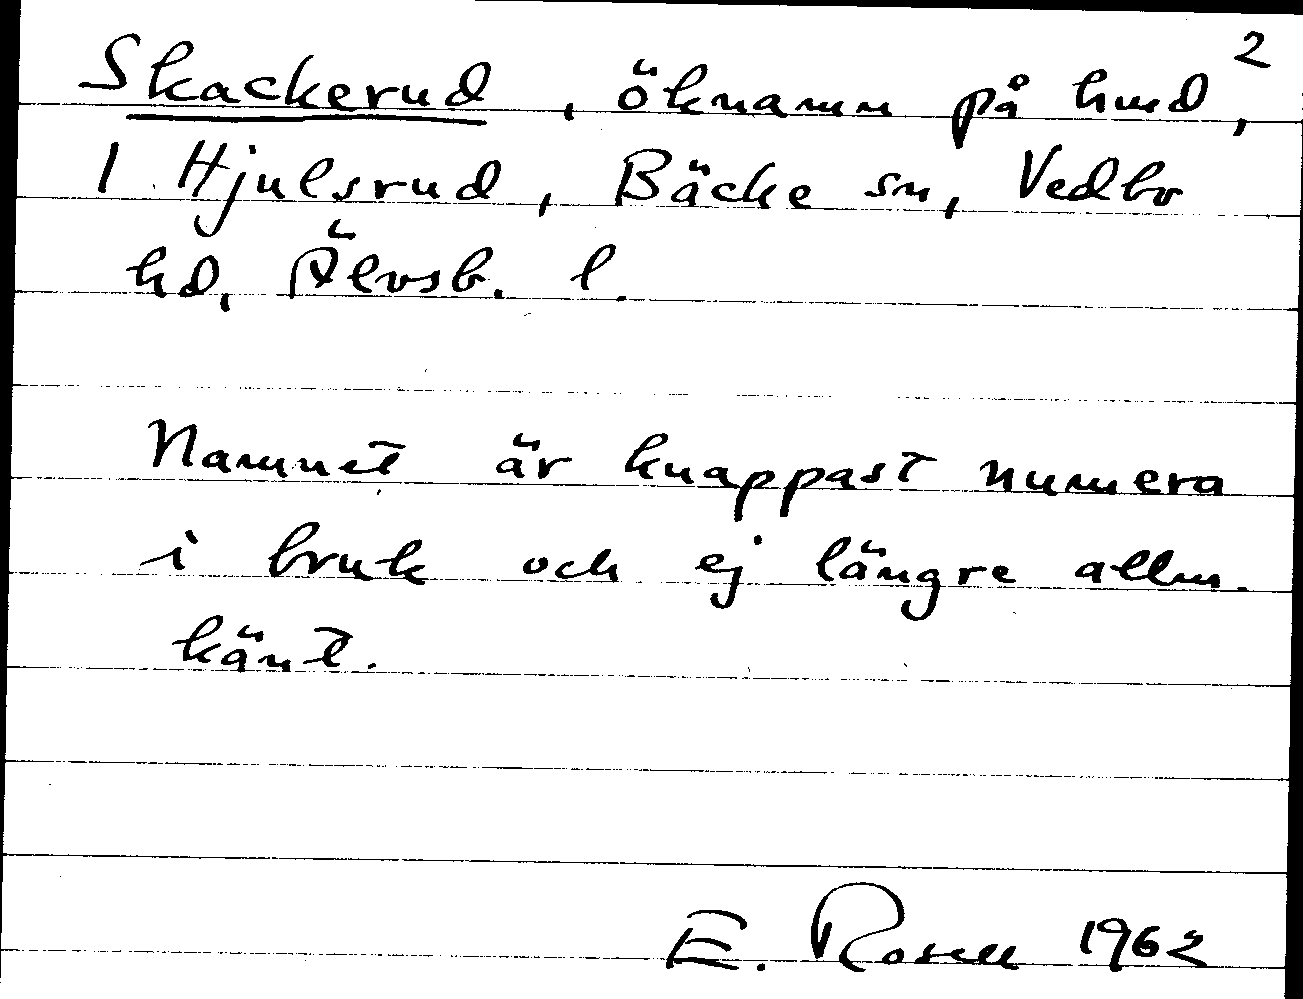 2
Skackerud, öknamn på hmd,
1 Hjulsrud, Bäcke sn, Vedbo
hd, Älvsb. l.
Namnet är knappast numera
i bruk och ej längre allm.
känt.
E. Rosell 1962